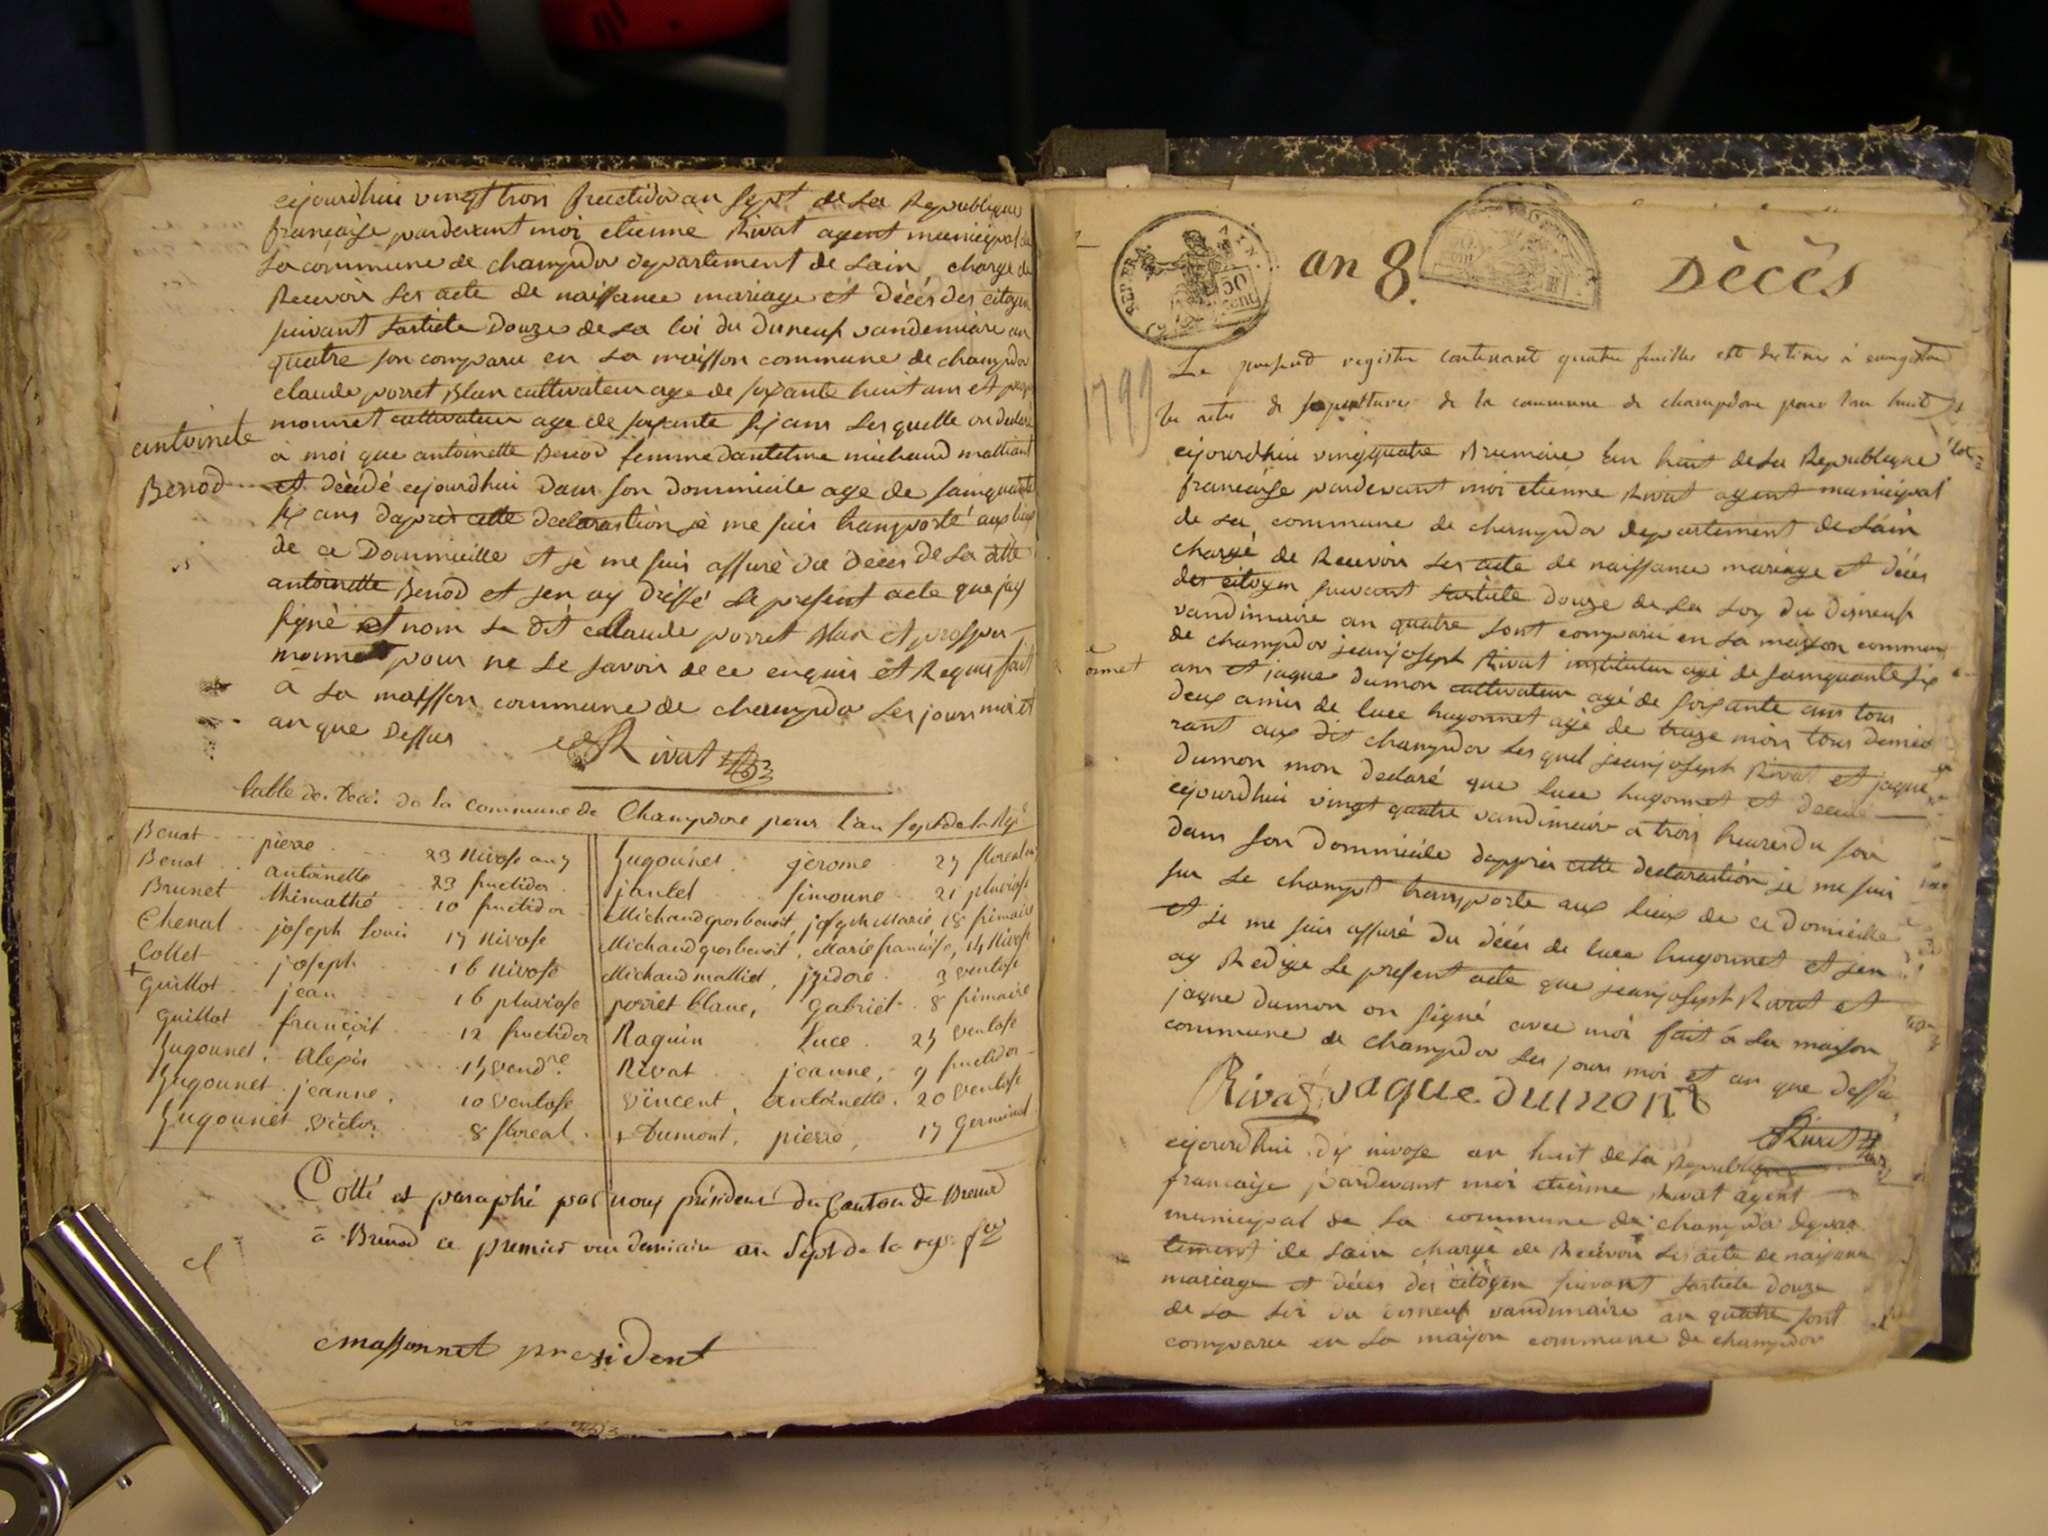 cejourdhui vingt trois fructidor an sept de La Republique
francaise pardevant moi etienne Rivat agent municipal de
La commune de champdor departement de Lain, charge de
Recevoir Les acte de naissance mariage et décés des citoyen
suivant Larticle Douze de La loi du dineuf vandemiaire an
quatre son comparu en La maisson commune de champdor
claude porret Blan cultivateur age de soixante huit ans et prosper
monnet cultivateur age de soixante six ans Les quelle on declaré
à moi que antoinette Benod femme dantelme michaud mattiant
et décédé cejourdhui dans son dommicile age de sainquante
six ans daprès cette declarastion je me suis transporté aux lieux
de ce Dommicille et je me suis assuré du décés de La ditte
antoinette Benod et jen ay dréssé Le present acte que jay
signé et nom Le dit claude porret Blan et prosper
monnet pour ne Le savoir de ce enquis et Requis fait
à La maisson commune de champdor Les jour moi et
an que dessus
Rivat
antoinete
Benod
table des Décé. de la commune de Champdore pour l'an sept de la Rep.
Benat pierre 23 Nivose an 7
Benat antoinette 23 fructidor
Brunet thimathé 10 fructidor
Chenal joseph Louis 17 Nivose
Collet joseph 16 Nivose
+ Guillot jean 16 pluviose
Guillot françoit 12 fructidor
hugounet alexis 15 vend.re
hugounet jeanne 10 ventose
hugounet victor 8 floreal
hugounet jerome 27 floreal
jantet simoune 21 pluviose
Michaud grosbenoit joseph Marie 18 frimaire
Michaud grosbenoit, Marie francoise, 14 Nivose
Michaud malliet, jzidore 3 ventose
porret blanc, Gabriel 8 frimaire
Raquin Luce 25 ventose
Rivat jeanne, 9 fructidor
Vincent, antoinette 20 ventose
+ Dumont, pierre, 17 Germinal
Cotté et paraphé par nous président du Canton de Brenod
à Brenod ce premier vendemiaire an Sept de la rep. f.se
Massonnet president
SEPTRE AIN
50
cent
an 8.
Décés
1799
Le present registre contenant quatre feuilles est destiné à enregistrer
les actes de sepultures de la commune de champdore pour lan huit
cejourdhui vingt quatre Brumaire lan huit de La Republique
francaise pardevant moi etienne Rivat agent municipal
de La commune de champdor departement de Lain
chargé de Recevoir Les acte de naissance mariage et décés
des citoyen suivant Larticle douze de La Loy du disneuf
vandimiaire an quatre sont comparu en La maison commune
de champdor jeanjoseph Rivat instituteur agé de sainquante six
ans et jaque dumon cultivateur agé de soixante ans tous
deux amis de luce hugonnet agé de traze mois tous demeu
rant aux dit champdor Les quel jeanjoseph Rivat et jaque
dumon mon declaré que luce hugonnet et decedé
cejourdhui vingt quatre vandimiaire a trois heures du soir
dans son dommicile dapprès cette declarastion je me suis
sur Le champt transporté aux lieux de ce domicille
et je me suis assuré du décés de luce hugonnet et jen
ay Redigé Le present acte que jeanjoseph Rivat et
jaque dumon on signé avec moi fait à La maison
commune de champdor Les jours moi et an que dessu
onnet
Rivat jaque dumon
Rivat
cejourdhui dix nivose an huit de La Republique
francaise pardevant moi etienne Rivat agent
municipal de La commune de champdor depar
tement de Lain chargé de Recevoir Les acte de naissance
mariage et décés des citoyen suivant Larticle douze
de La Loi du disneuf vandimiaire an quatre sont
comparu en La maison commune de champdor